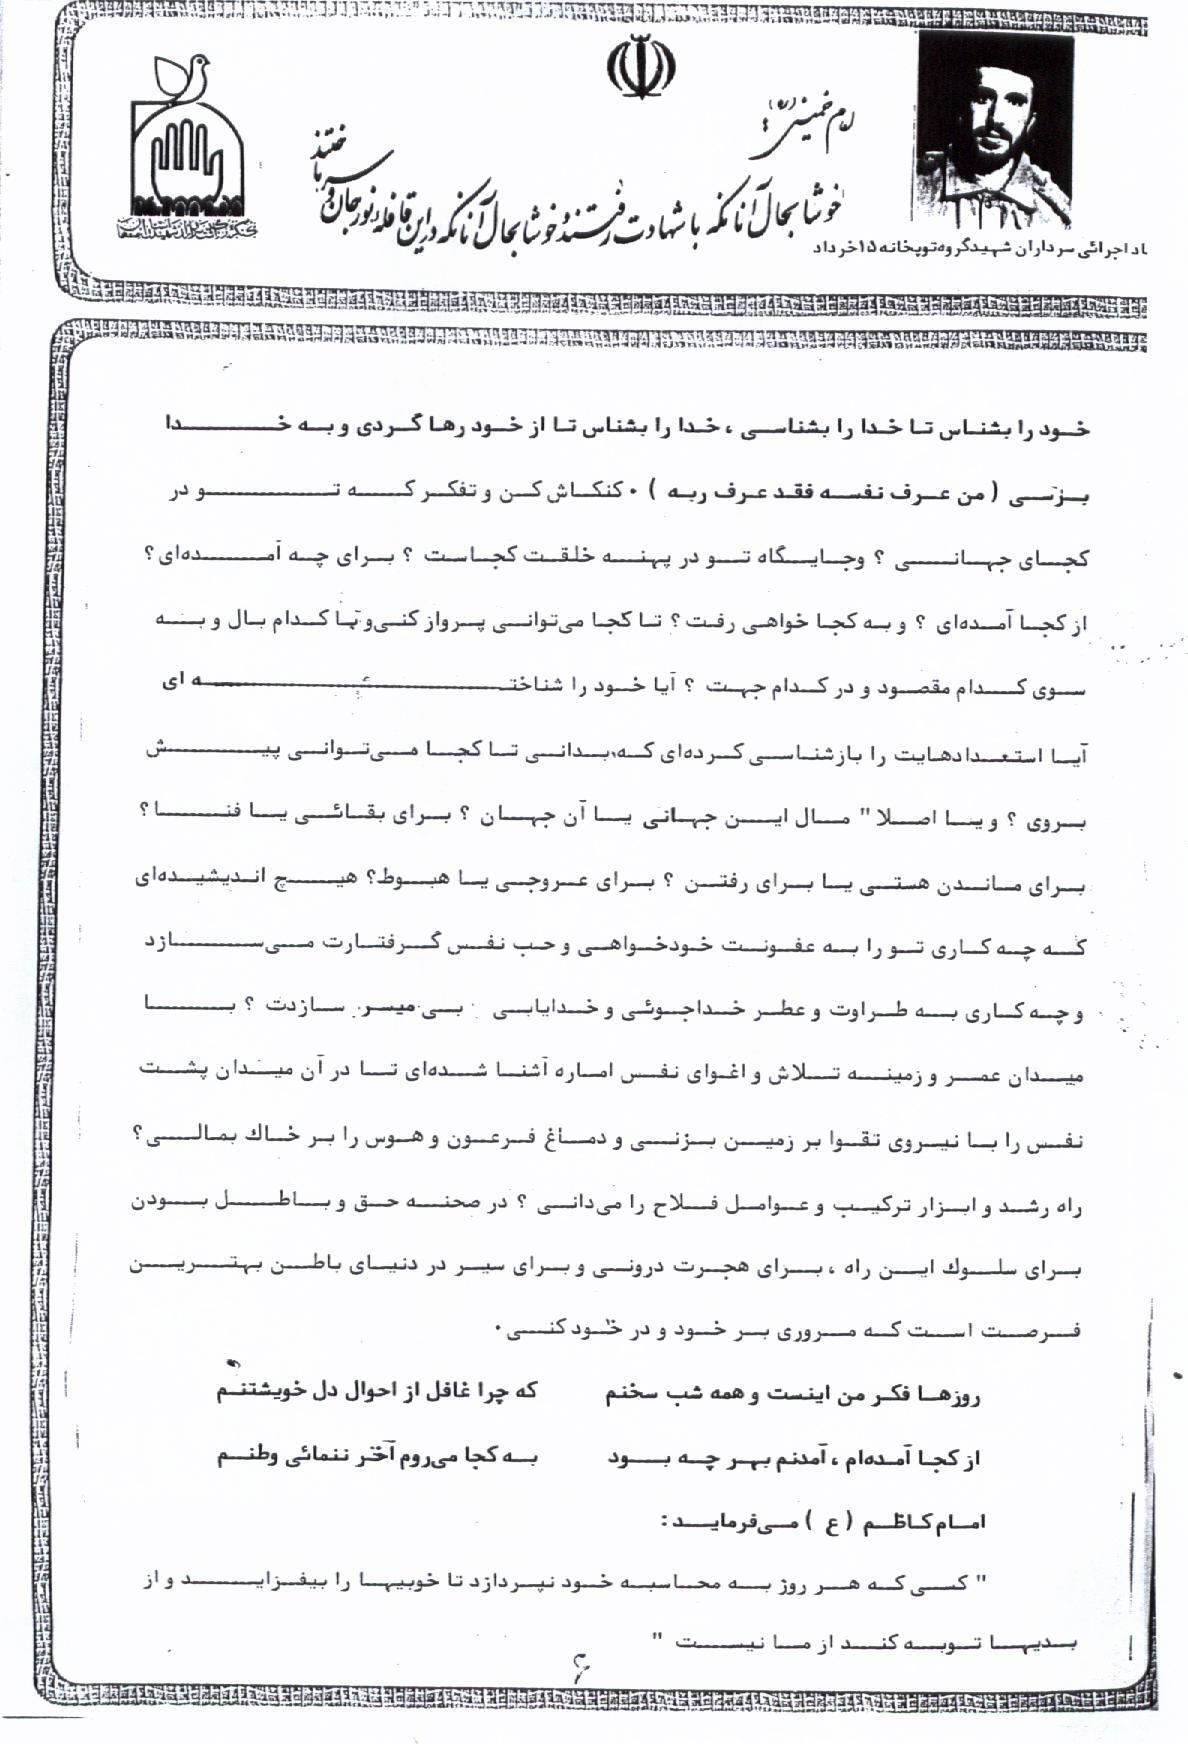 امام خمینی (ره):
خوشا بحال آنانکه با شهادت رفتند خوشا بحال آنانکه در این قافله نور جان و سر باختند
اد اجرائی سرداران شهید گروه توپخانه ۱۵ خرداد
خود را بشناس تا خدا را بشناسی ، خدا را بشناس تا از خود رها گردی و به خدا
برسی ( من عرف نفسه فقد عرف ربه ) ۰ کنکاش کن و تفکر که تو در
کجای جهانی ؟ وجایگاه تو در پهنه خلقت کجاست ؟ برای چه آمده‌ای ؟
از کجا آمده‌ای ؟ و به کجا خواهی رفت ؟ تا کجا می‌توانی پرواز کنی‌و با کدام بال و به
سوی کدام مقصود و در کدام جهت ؟ آیا خود را شناخته ای
آیا استعدادهایت را بازشناسی کرده‌ای که بدانی تا کجا می‌توانی پیش
بروی ؟ و یا اصلا" مال این جهانی یا آن جهان ؟ برای بقائی یا فنا ؟
برای ماندن هستی یا برای رفتن ؟ برای عروجی یا هبوط؟ هیچ اندیشیده‌ای
که چه کاری تو را به عفونت خودخواهی و حب نفس گرفتارت می‌سازد
و چه کاری به طراوت و عطر خداجوئی و خدایابی میسر سازدت ؟ با
میدان عمر و زمینه تلاش و اغوای نفس اماره آشنا شده‌ای تا در آن میدان پشت
نفس را با نیروی تقوا بر زمین بزنی و دماغ فرعون و هوس را بر خاك بمالی ؟
راه رشد و ابزار ترکیب و عوامل فلاح را می‌دانی ؟ در صحنه حق و باطل بودن
برای سلوك این راه ، برای هجرت درونی و برای سیر در دنیای باطن بهترین
فرصت است که مروری بر خود و در خود کنی ۰
روزها فکر من اینست و همه شب سخنم که چرا غافل از احوال دل خویشتنم
از کجا آمده‌ام ، آمدنم بهر چه بود به کجا می‌روم آخر ننمائی وطنم
امام کاظم ( ع ) می‌فرماید :
" کسی که هر روز به محاسبه خود نپردازد تا خوبیها را بیفزاید و از
بدیها توبه کند از ما نیست "
۶